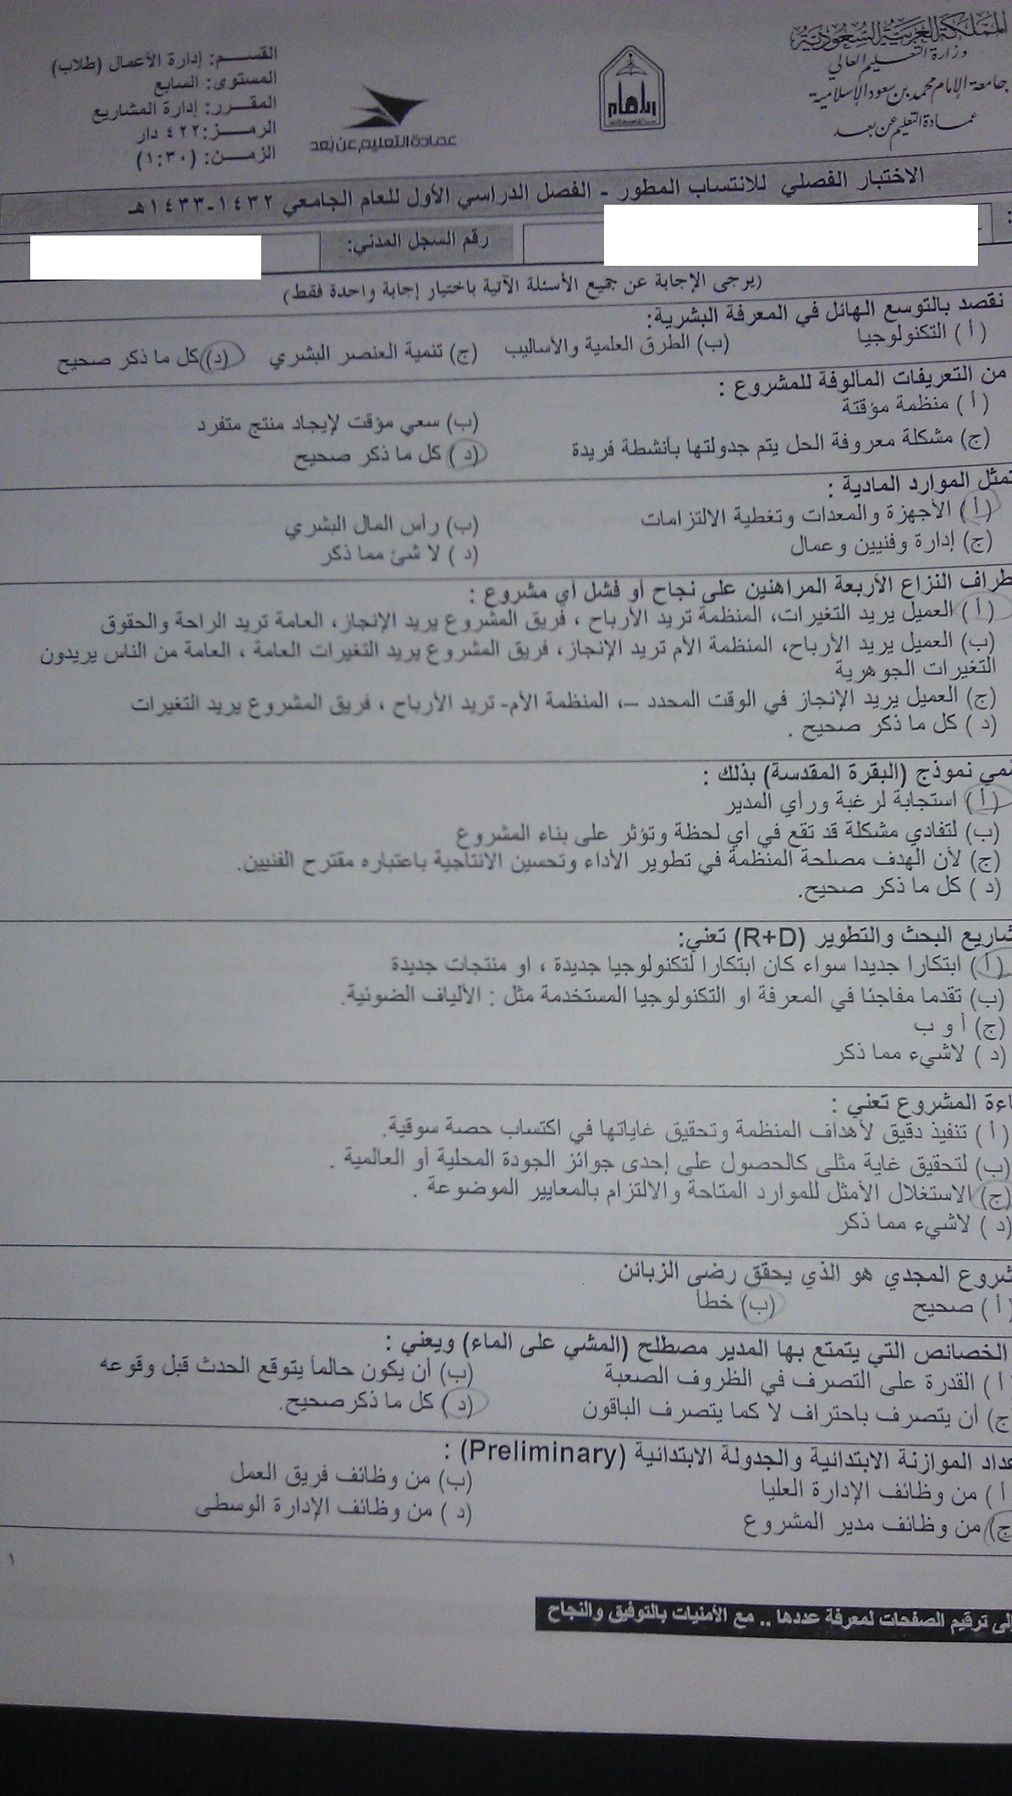 المملكة العربية السعودية
وزارة التعليم العالي
جامعة الإمام محمد بن سعود الإسلامية
عمادة التعليم عن بعد
عمادة التعليم عن بُعد
القسم: إدارة الأعمال (طلاب)
المستوى: السابع
المقرر: إدارة المشاريع
الرمز: ٤٢٢ دار
الزمن: (١:٣٠)
الاختبار الفصلي للانتساب المطور - الفصل الدراسي الأول للعام الجامعي ١٤٣٢-١٤٣٣هـ
رقم السجل المدني:
(يرجى الإجابة عن جميع الأسئلة الآتية باختيار إجابة واحدة فقط)
نقصد بالتوسع الهائل في المعرفة البشرية:
(أ) التكنولوجيا (ب) الطرق العلمية والأساليب (ج) تنمية العنصر البشري (د) كل ما ذكر صحيح
من التعريفات المألوفة للمشروع :
(أ) منظمة مؤقتة (ب) سعي مؤقت لإيجاد منتج متفرد
(ج) مشكلة معروفة الحل يتم جدولتها بأنشطة فريدة (د) كل ما ذكر صحيح
تمثل الموارد المادية :
(أ) الأجهزة والمعدات وتغطية الالتزامات (ب) رأس المال البشري
(ج) إدارة وفنيين وعمال (د) لا شئ مما ذكر
طراف النزاع الأربعة المراهنين على نجاح أو فشل أي مشروع :
(أ) العميل يريد التغيرات، المنظمة تريد الأرباح ، فريق المشروع يريد الإنجاز، العامة تريد الراحة والحقوق
(ب) العميل يريد الأرباح، المنظمة الأم تريد الإنجاز، فريق المشروع يريد التغيرات العامة ، العامة من الناس يريدون
التغيرات الجوهرية
(ج) العميل يريد الإنجاز في الوقت المحدد –، المنظمة الأم- تريد الأرباح ، فريق المشروع يريد التغيرات
(د) كل ما ذكر صحيح .
مي نموذج (البقرة المقدسة) بذلك :
(أ) استجابة لرغبة ورأي المدير
(ب) لتفادي مشكلة قد تقع في أي لحظة وتؤثر على بناء المشروع
(ج) لأن الهدف مصلحة المنظمة في تطوير الأداء وتحسين الانتاجية باعتباره مقترح الفنيين.
(د) كل ما ذكر صحيح.
شاريع البحث والتطوير (R+D) تعني:
(أ) ابتكارا جديدا سواء كان ابتكارا لتكنولوجيا جديدة ، او منتجات جديدة
(ب) تقدما مفاجئا في المعرفة او التكنولوجيا المستخدمة مثل : الألياف الضوئية.
(ج) أ و ب
(د) لاشيء مما ذكر
اءة المشروع تعني :
(أ) تنفيذ دقيق لأهداف المنظمة وتحقيق غاياتها في اكتساب حصة سوقية.
(ب) لتحقيق غاية مثلى كالحصول على إحدى جوائز الجودة المحلية أو العالمية .
(ج) الاستغلال الأمثل للموارد المتاحة والالتزام بالمعايير الموضوعة .
(د) لاشيء مما ذكر
شروع المجدي هو الذي يحقق رضى الزبائن
(أ) صحيح (ب) خطأ
الخصائص التي يتمتع بها المدير مصطلح (المشي على الماء) ويعني :
أ) القدرة على التصرف في الظروف الصعبة (ب) أن يكون حالماً يتوقع الحدث قبل وقوعه
ج) أن يتصرف باحتراف لا كما يتصرف الباقون (د) كل ما ذكر صحيح.
عداد الموازنة الابتدائية والجدولة الابتدائية (Preliminary) :
أ) من وظائف الإدارة العليا (ب) من وظائف فريق العمل
ج) من وظائف مدير المشروع (د) من وظائف الإدارة الوسطى
١
لى ترقيم الصفحات لمعرفة عددها .. مع الأمنيات بالتوفيق والنجاح